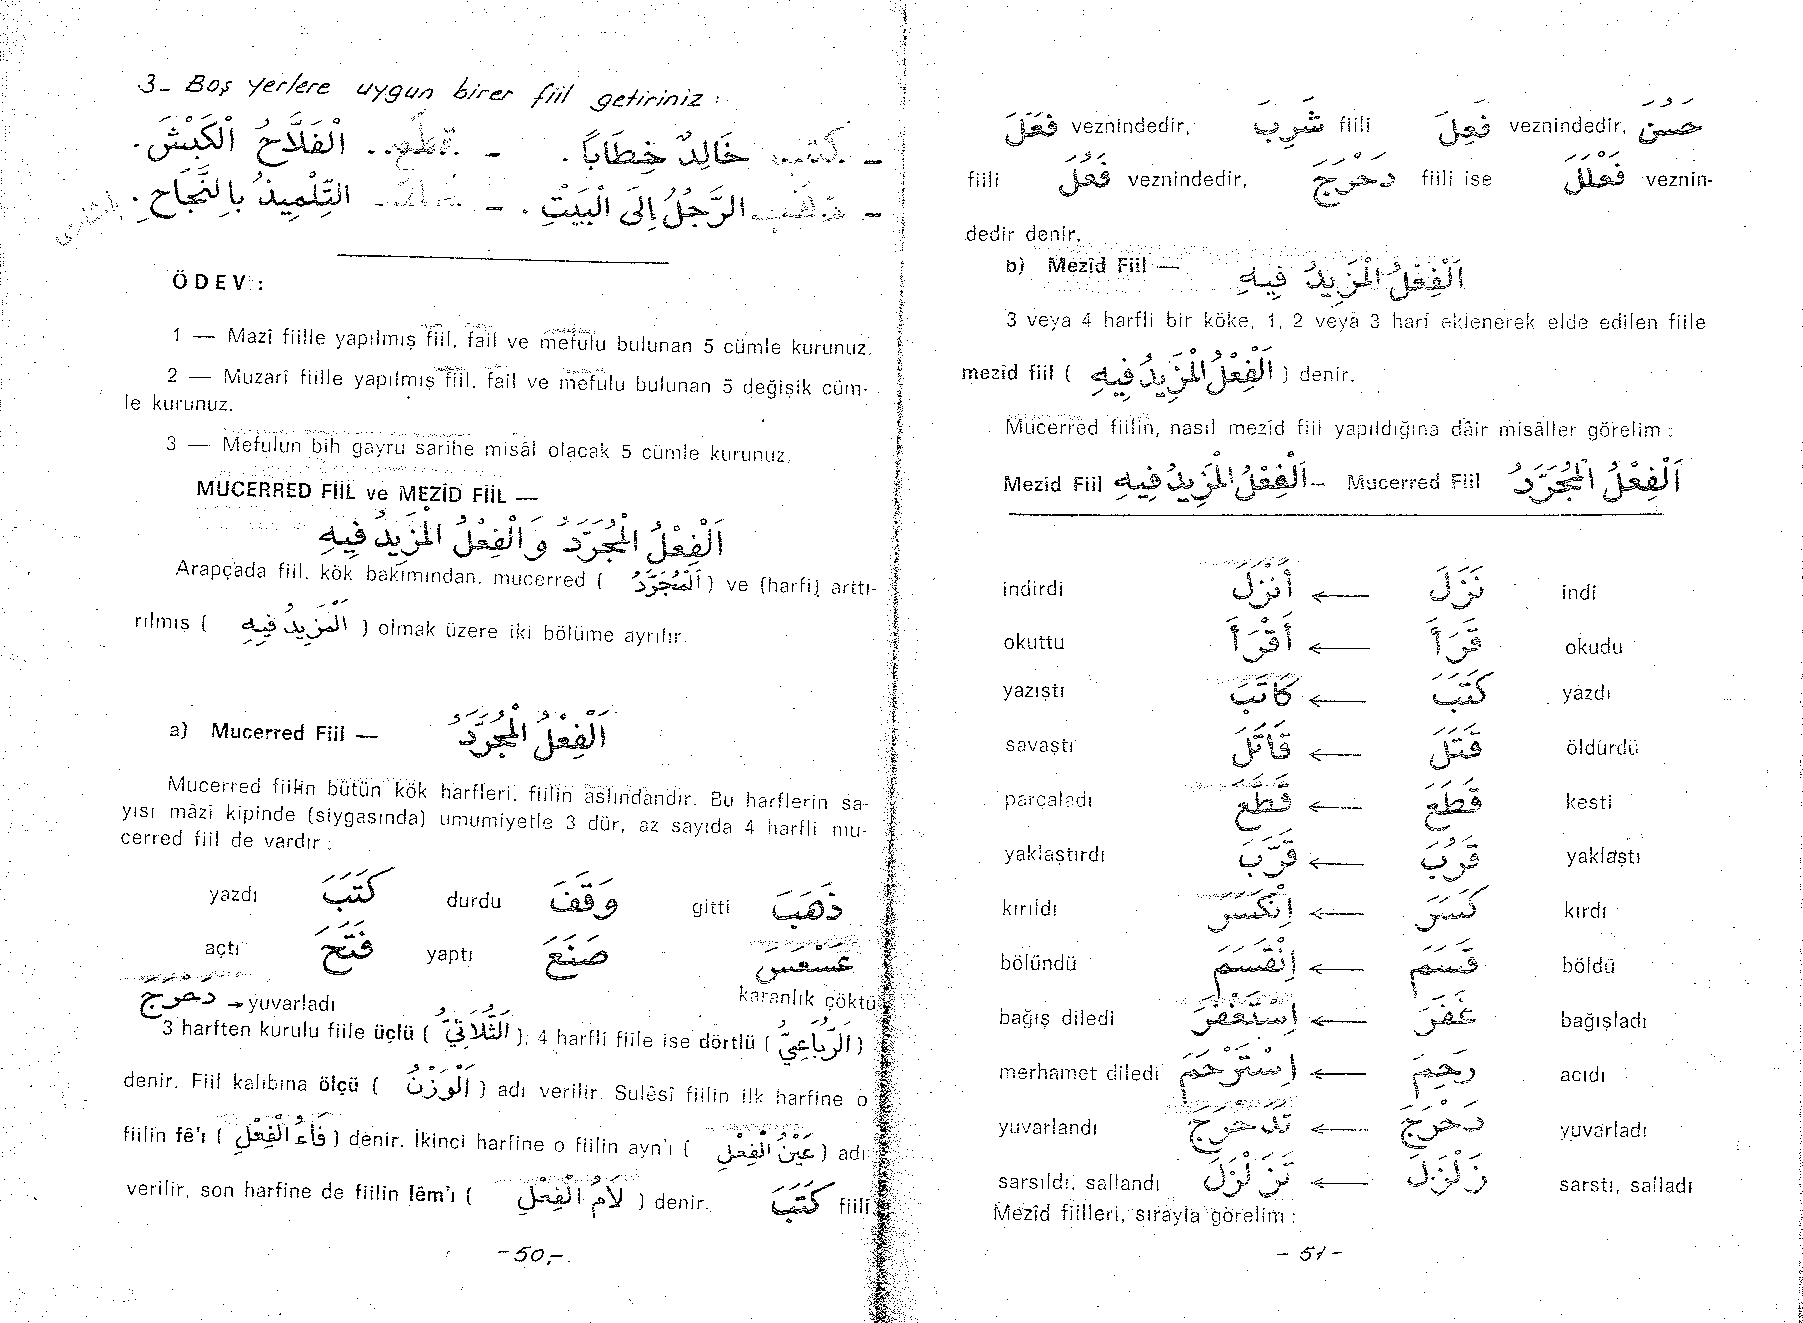 3- Boş yerlere uygun birer fiil getiriniz :
- كتب خَالِدٌ خِطَابًا. - قطع.. اَلْفَلَّاحُ الْكَبْشَ.
- ذهب الرَّجُلُ إِلَى الْبَيْتِ. - ... التِّلْمِيذُ بِالنَّجَاحِ.
ÖDEV :
1 — Mazî fiille yapılmış fiil, fail ve mefulu bulunan 5 cümle kurunuz.
2 — Muzarî fiille yapılmış fiil, fail ve mefulu bulunan 5 değişik cüm-
le kurunuz.
3 — Mefulun bih gayru sarihe misâl olacak 5 cümle kurunuz.
MUCERRED FİİL ve MEZİD FİİL —
اَلْفِعْلُ الْمُجَرَّدُ وَالْفِعْلُ الْمَزِيدُ فِيهِ
Arapçada fiil, kök bakımından, mucerred ( اَلْمُجَرَّدُ ) ve (harfi) arttı-
rılmış ( اَلْمَزِيدُ فِيهِ ) olmak üzere iki bölüme ayrılır.
a) Mucerred Fiil — اَلْفِعْلُ الْمُجَرَّدُ
Mucerred fiilin bütün kök harfleri, fiilin aslındandır. Bu harflerin sa-
yısı mâzî kipinde (siygasında) umumiyetle 3 dür, az sayıda 4 harfli mu-
cerred fiil de vardır :
yazdı كَتَبَ durdu وَقَفَ gitti ذَهَبَ
açtı فَتَحَ yaptı صَنَعَ عَسْعَسَ
دَحْرَجَ → yuvarladı karanlık çöktü
3 harften kurulu fiile üçlü ( اَلثُّلَاثِيُّ ), 4 harfli fiile ise dörtlü ( اَلرُّبَاعِيُّ )
denir. Fiil kalıbına ölçü ( اَلْوَزْنُ ) adı verilir. Sulêsî fiilin ilk harfine o
fiilin fê'ı ( فَاءُ الْفِعْلِ ) denir. İkinci harfine o fiilin ayn'ı ( عَيْنُ الْفِعْلِ ) adı
verilir, son harfine de fiilin lêm'ı ( لَامُ الْفِعْلِ ) denir. كَتَبَ fiili
-50-
فَعَلَ veznindedir, شَرِبَ fiili فَعِلَ veznindedir, حَسُنَ
fiili فَعُلَ veznindedir, دَحْرَجَ fiili ise فَعْلَلَ veznin-
dedir denir.
b) Mezîd Fiil — اَلْفِعْلُ الْمَزِيدُ فِيهِ
3 veya 4 harfli bir köke, 1, 2 veya 3 harf eklenerek elde edilen fiile
mezîd fiil ( اَلْفِعْلُ الْمَزِيدُ فِيهِ ) denir.
Mucerred fiilin, nasıl mezîd fiil yapıldığına dâir misâller görelim :
Mezîd Fiil اَلْفِعْلُ الْمَزِيدُ فِيهِ - Mucerred Fiil اَلْفِعْلُ الْمُجَرَّدُ
indirdi أَنْزَلَ ← نَزَلَ indi
okuttu أَقْرَأَ ← قَرَأَ okudu
yazıştı كَاتَبَ ← كَتَبَ yazdı
savaştı قَاتَلَ ← قَتَلَ öldürdü
parçaladı قَطَّعَ ← قَطَعَ kesti
yaklaştırdı قَرَّبَ ← قَرُبَ yaklaştı
kırıldı اِنْكَسَرَ ← كَسَرَ kırdı
bölündü اِنْقَسَمَ ← قَسَمَ böldü
bağış diledi اِسْتَغْفَرَ ← غَفَرَ bağışladı
merhamet diledi اِسْتَرْحَمَ ← رَحِمَ acıdı
yuvarlandı تَدَحْرَجَ ← دَحْرَجَ yuvarladı
sarsıldı, sallandı تَزَلْزَلَ ← زَلْزَلَ sarstı, salladı
Mezîd fiilleri, sırayla görelim :
- 51 -